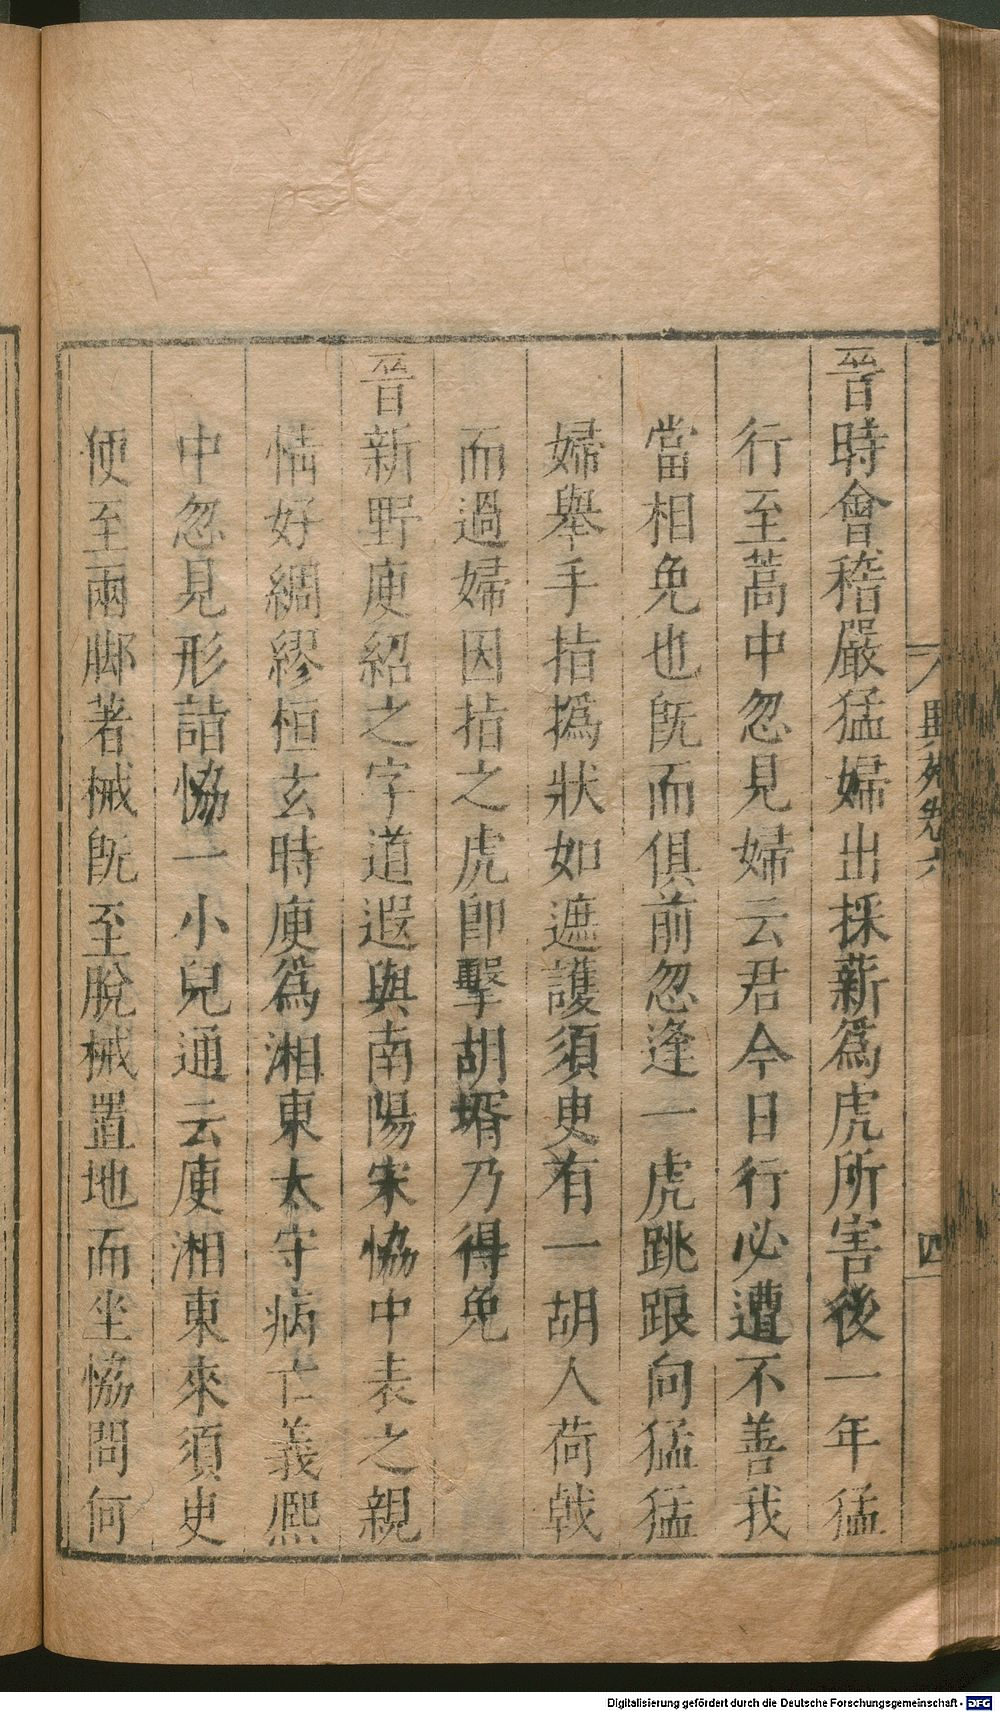 晉時會稽嚴猛婦出採薪爲虎所害後一年猛
行至蒿中忽見婦云君今日行必遭不善我
當相免也旣而俱前忽逢一虎跳踉向猛猛
婦舉手指撝狀如遮護須臾有一胡人荷戟
而過婦因指之虎卽擊胡壻乃得免
晉新野庾紹之字道遐與南陽宋協中表之親
情好綢繆桓玄時庾爲湘東太守病亡義熙
中忽見形詣協一小兒通云庾湘東來須臾
便至兩脚著械旣至脫械置地而坐協問何
異苑卷六
四
Digitalisierung gefördert durch die Deutsche Forschungsgemeinschaft - DFG